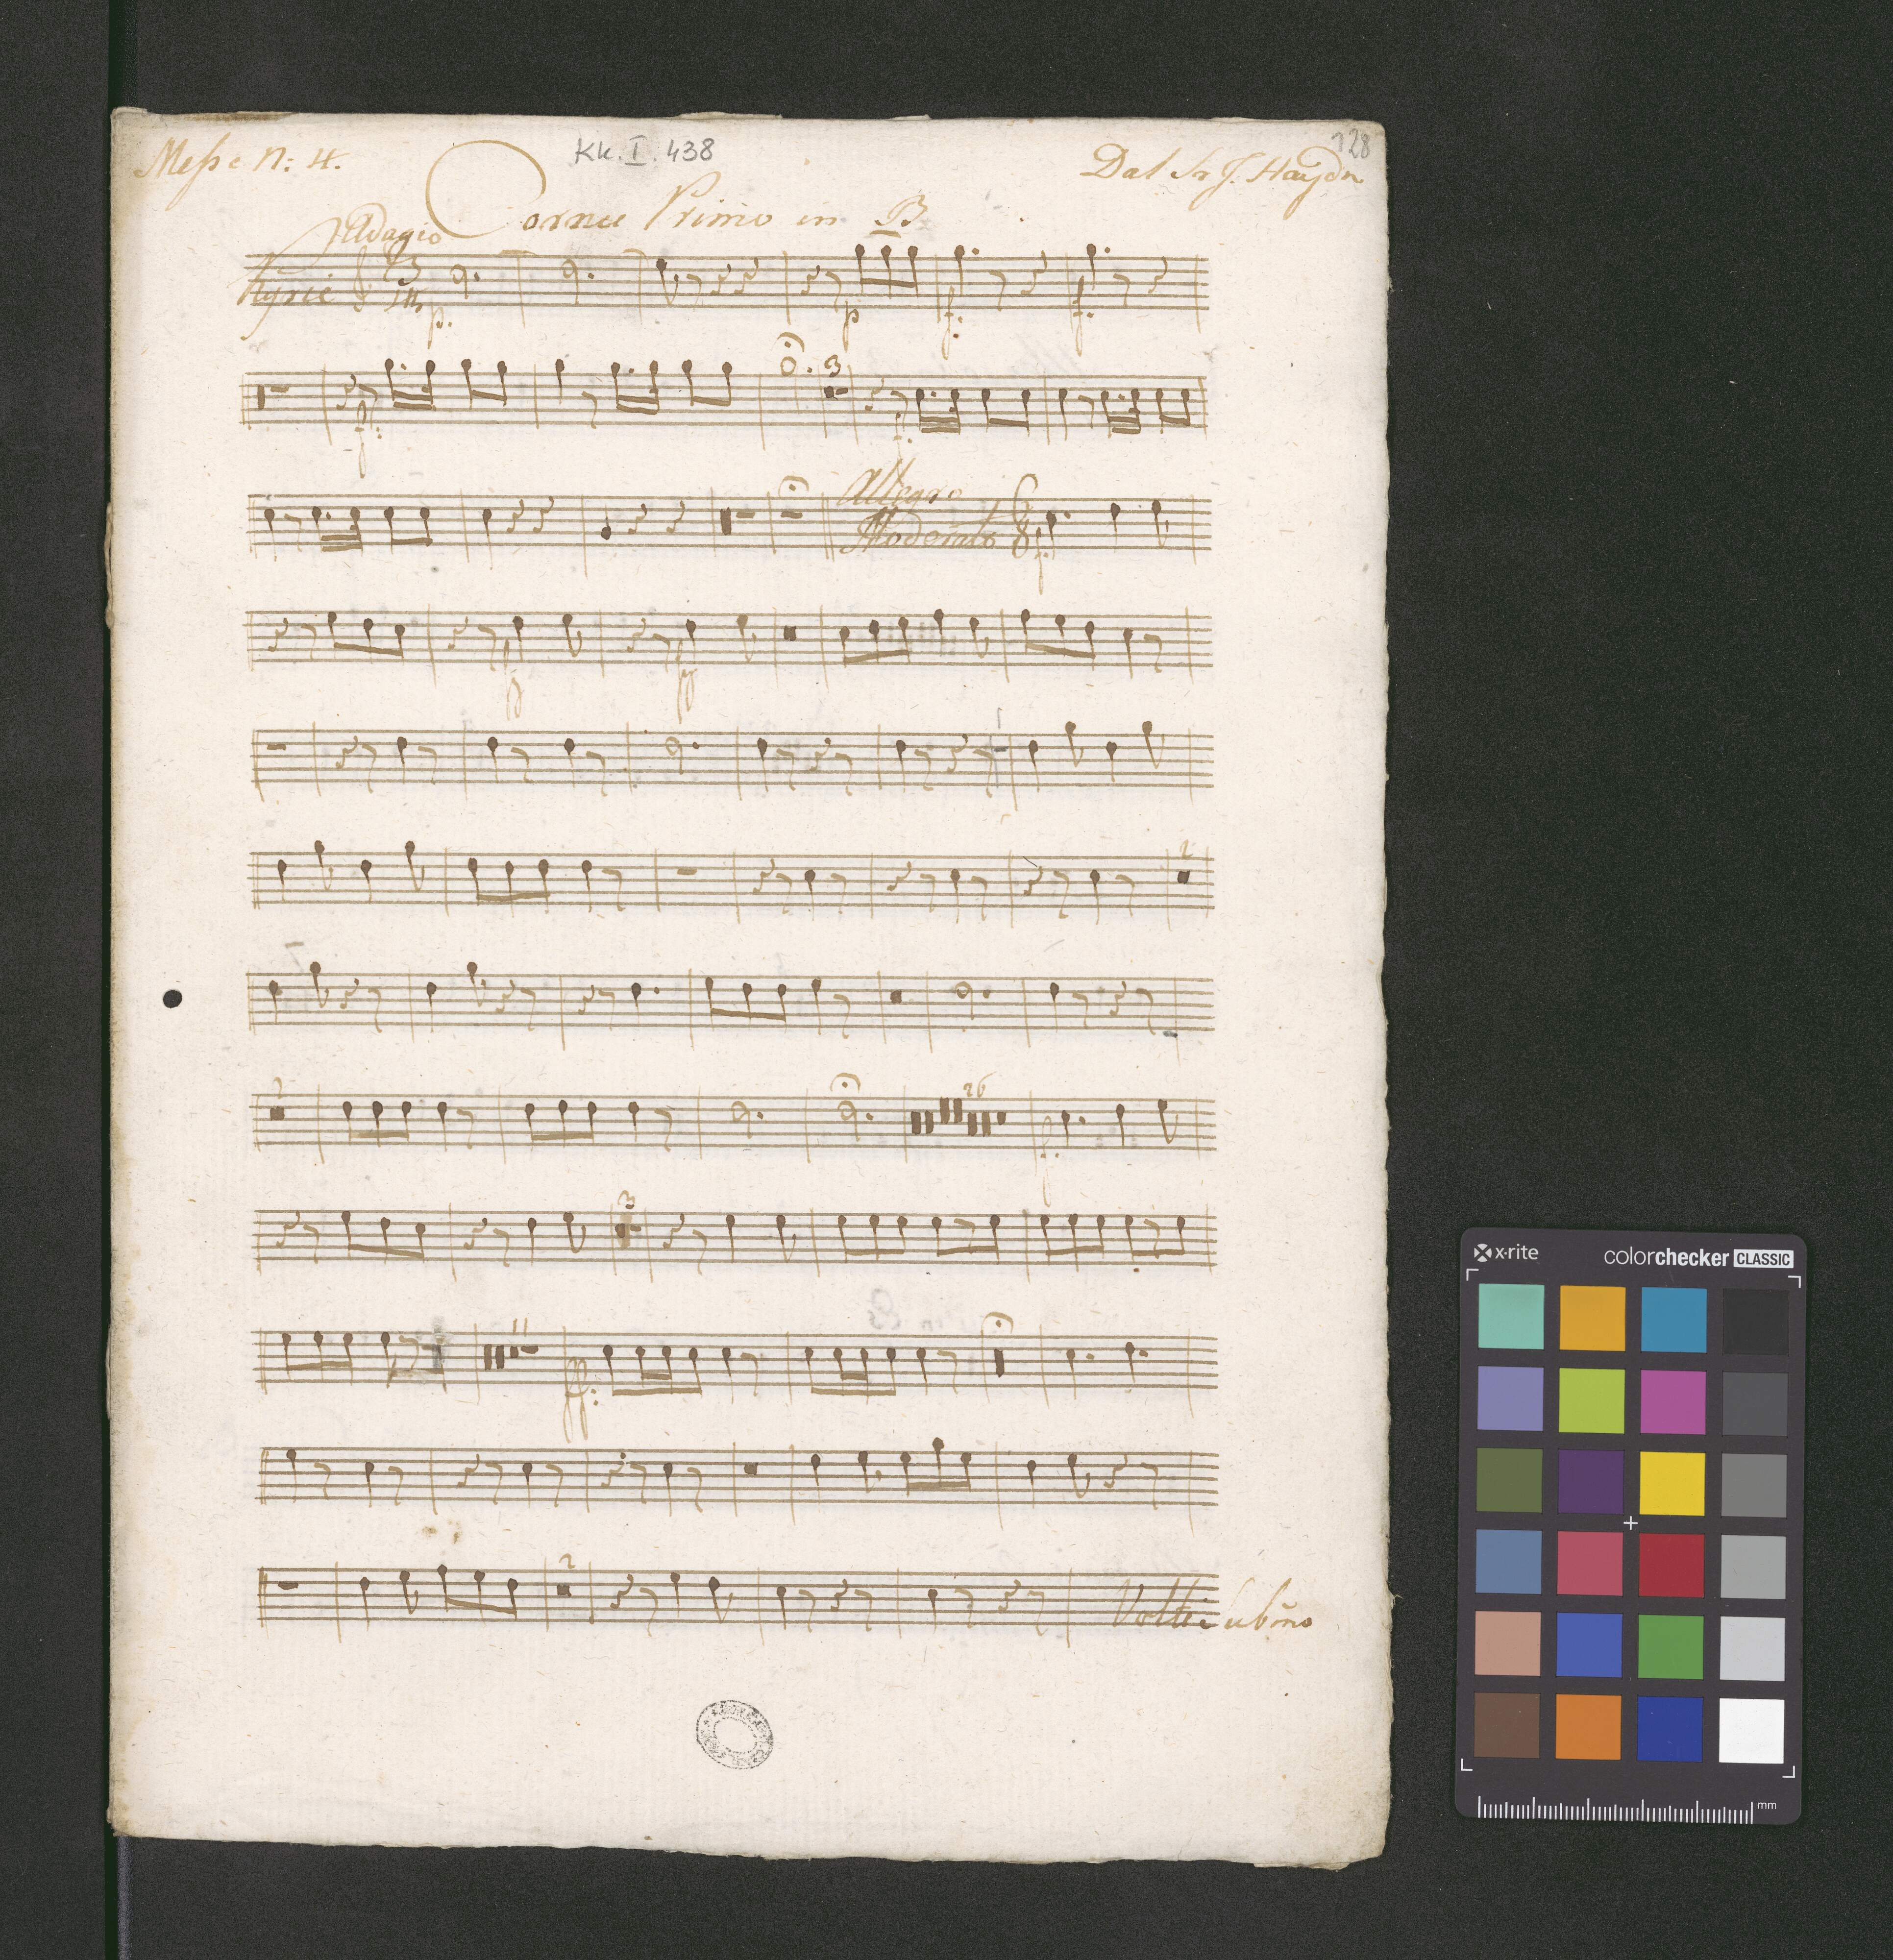 Messe N: 4.
Kk. I. 438
128
Dal Sr J. Haydn
Cornu Primo in B
Adagio
Kyrie 3/4
p.
p
f.
f.
f.
3
f.
Allegro
Moderato 6/8
f.
2
2
26
f.
3
11
ff.
2
Volti Subito
x·rite
colorchecker CLASSIC
mm